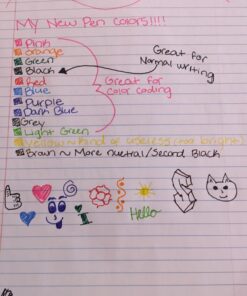 My New Pen Colors!!!!
Pink
orange
Green
Black
Red
Blue
Purple
Dark Blue
Grey
Light Green
Great for
Normal writing
Great for
color coding
Yellow ~ Kind of useless (too bright)
Brown ~ More nuetral/Second Black
i
Hello